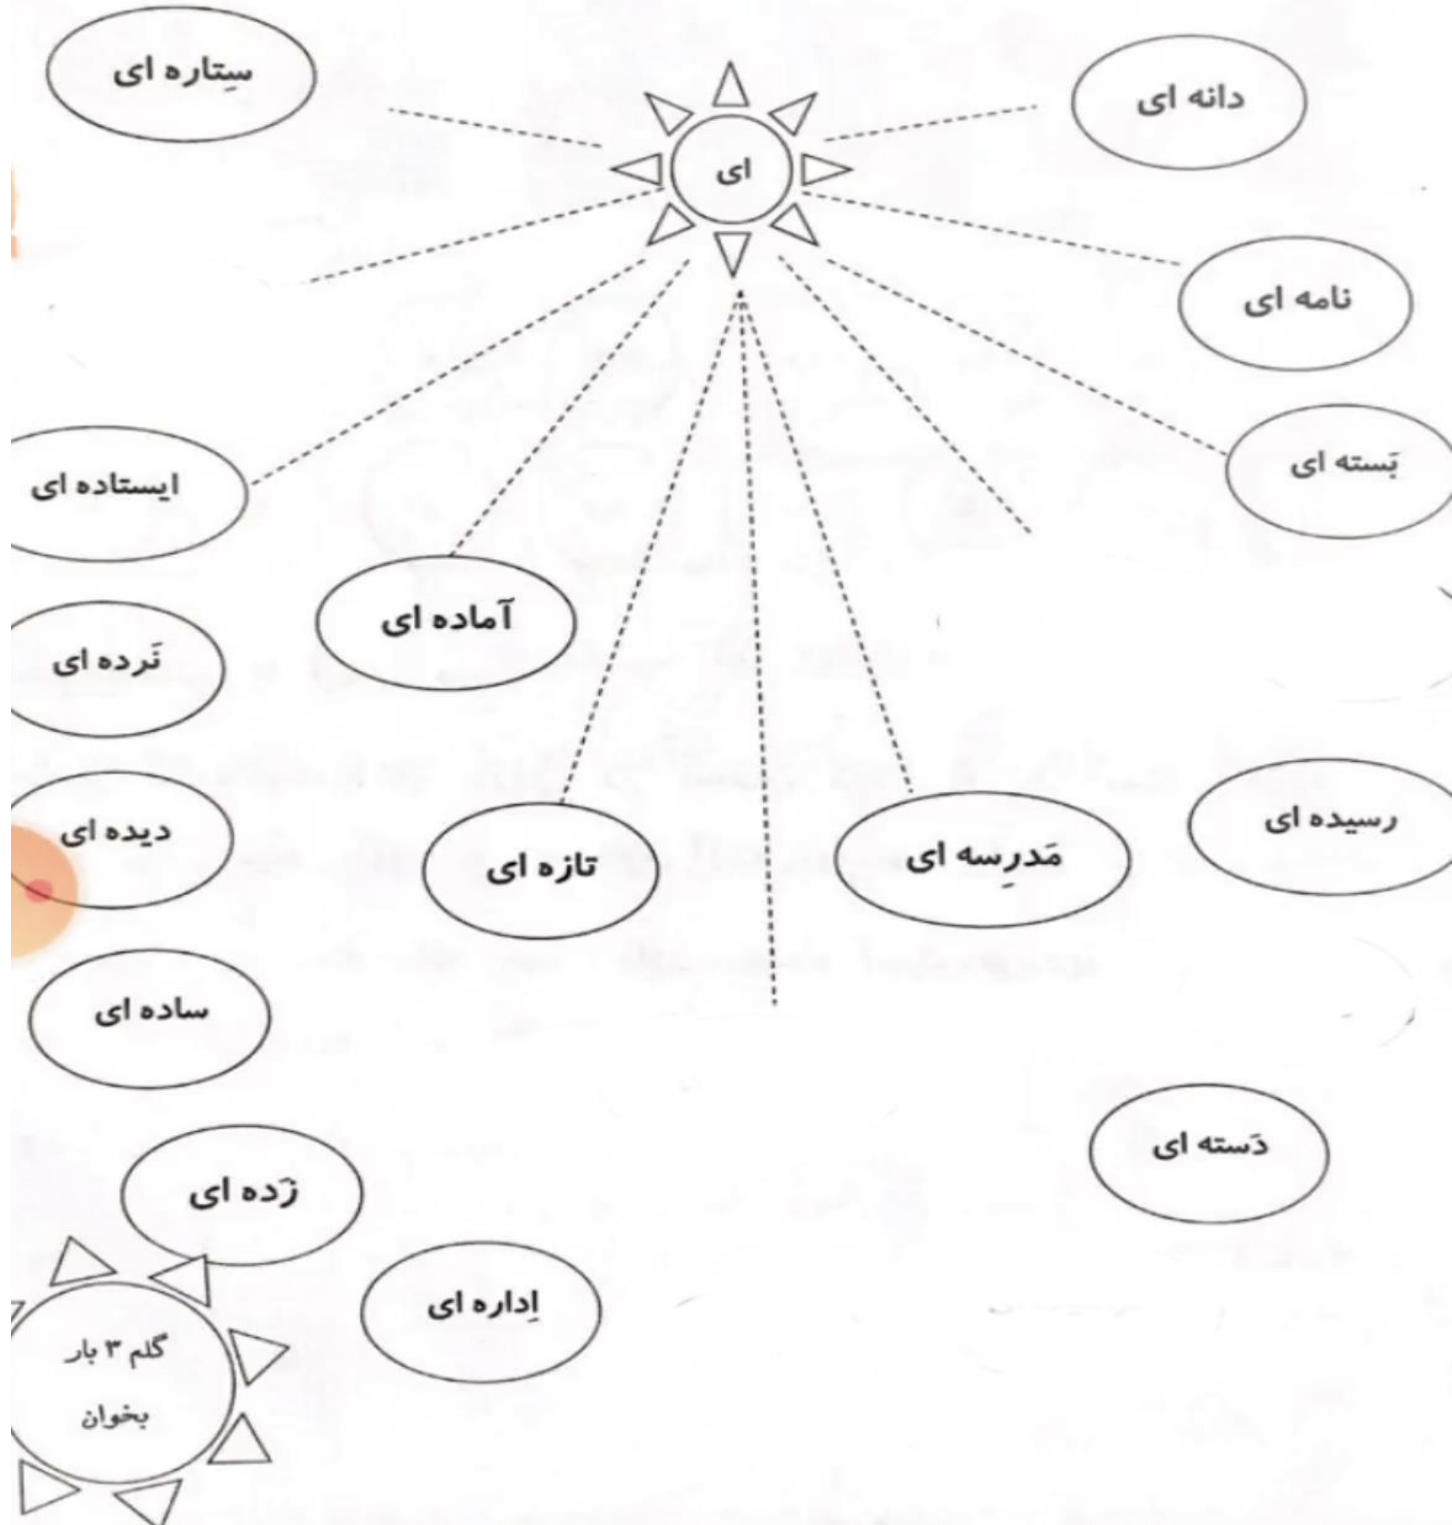 سِتاره ای
دانه ای
ای
نامه ای
بَسته ای
ایستاده ای
آماده ای
نَرده ای
دیده ای
تازه ای
مَدرِسه ای
رسیده ای
ساده ای
دَسته ای
زَده ای
اِداره ای
گلم ۳ بار
بخوان